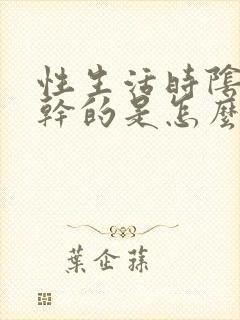 性生活時陰
幹的是怎麼
葉企蓀